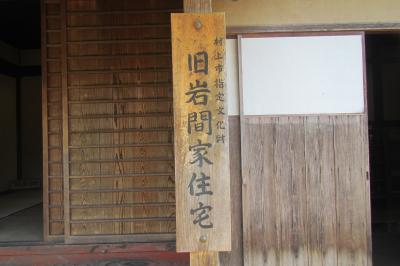 村上市指定文化財
旧岩間家住宅